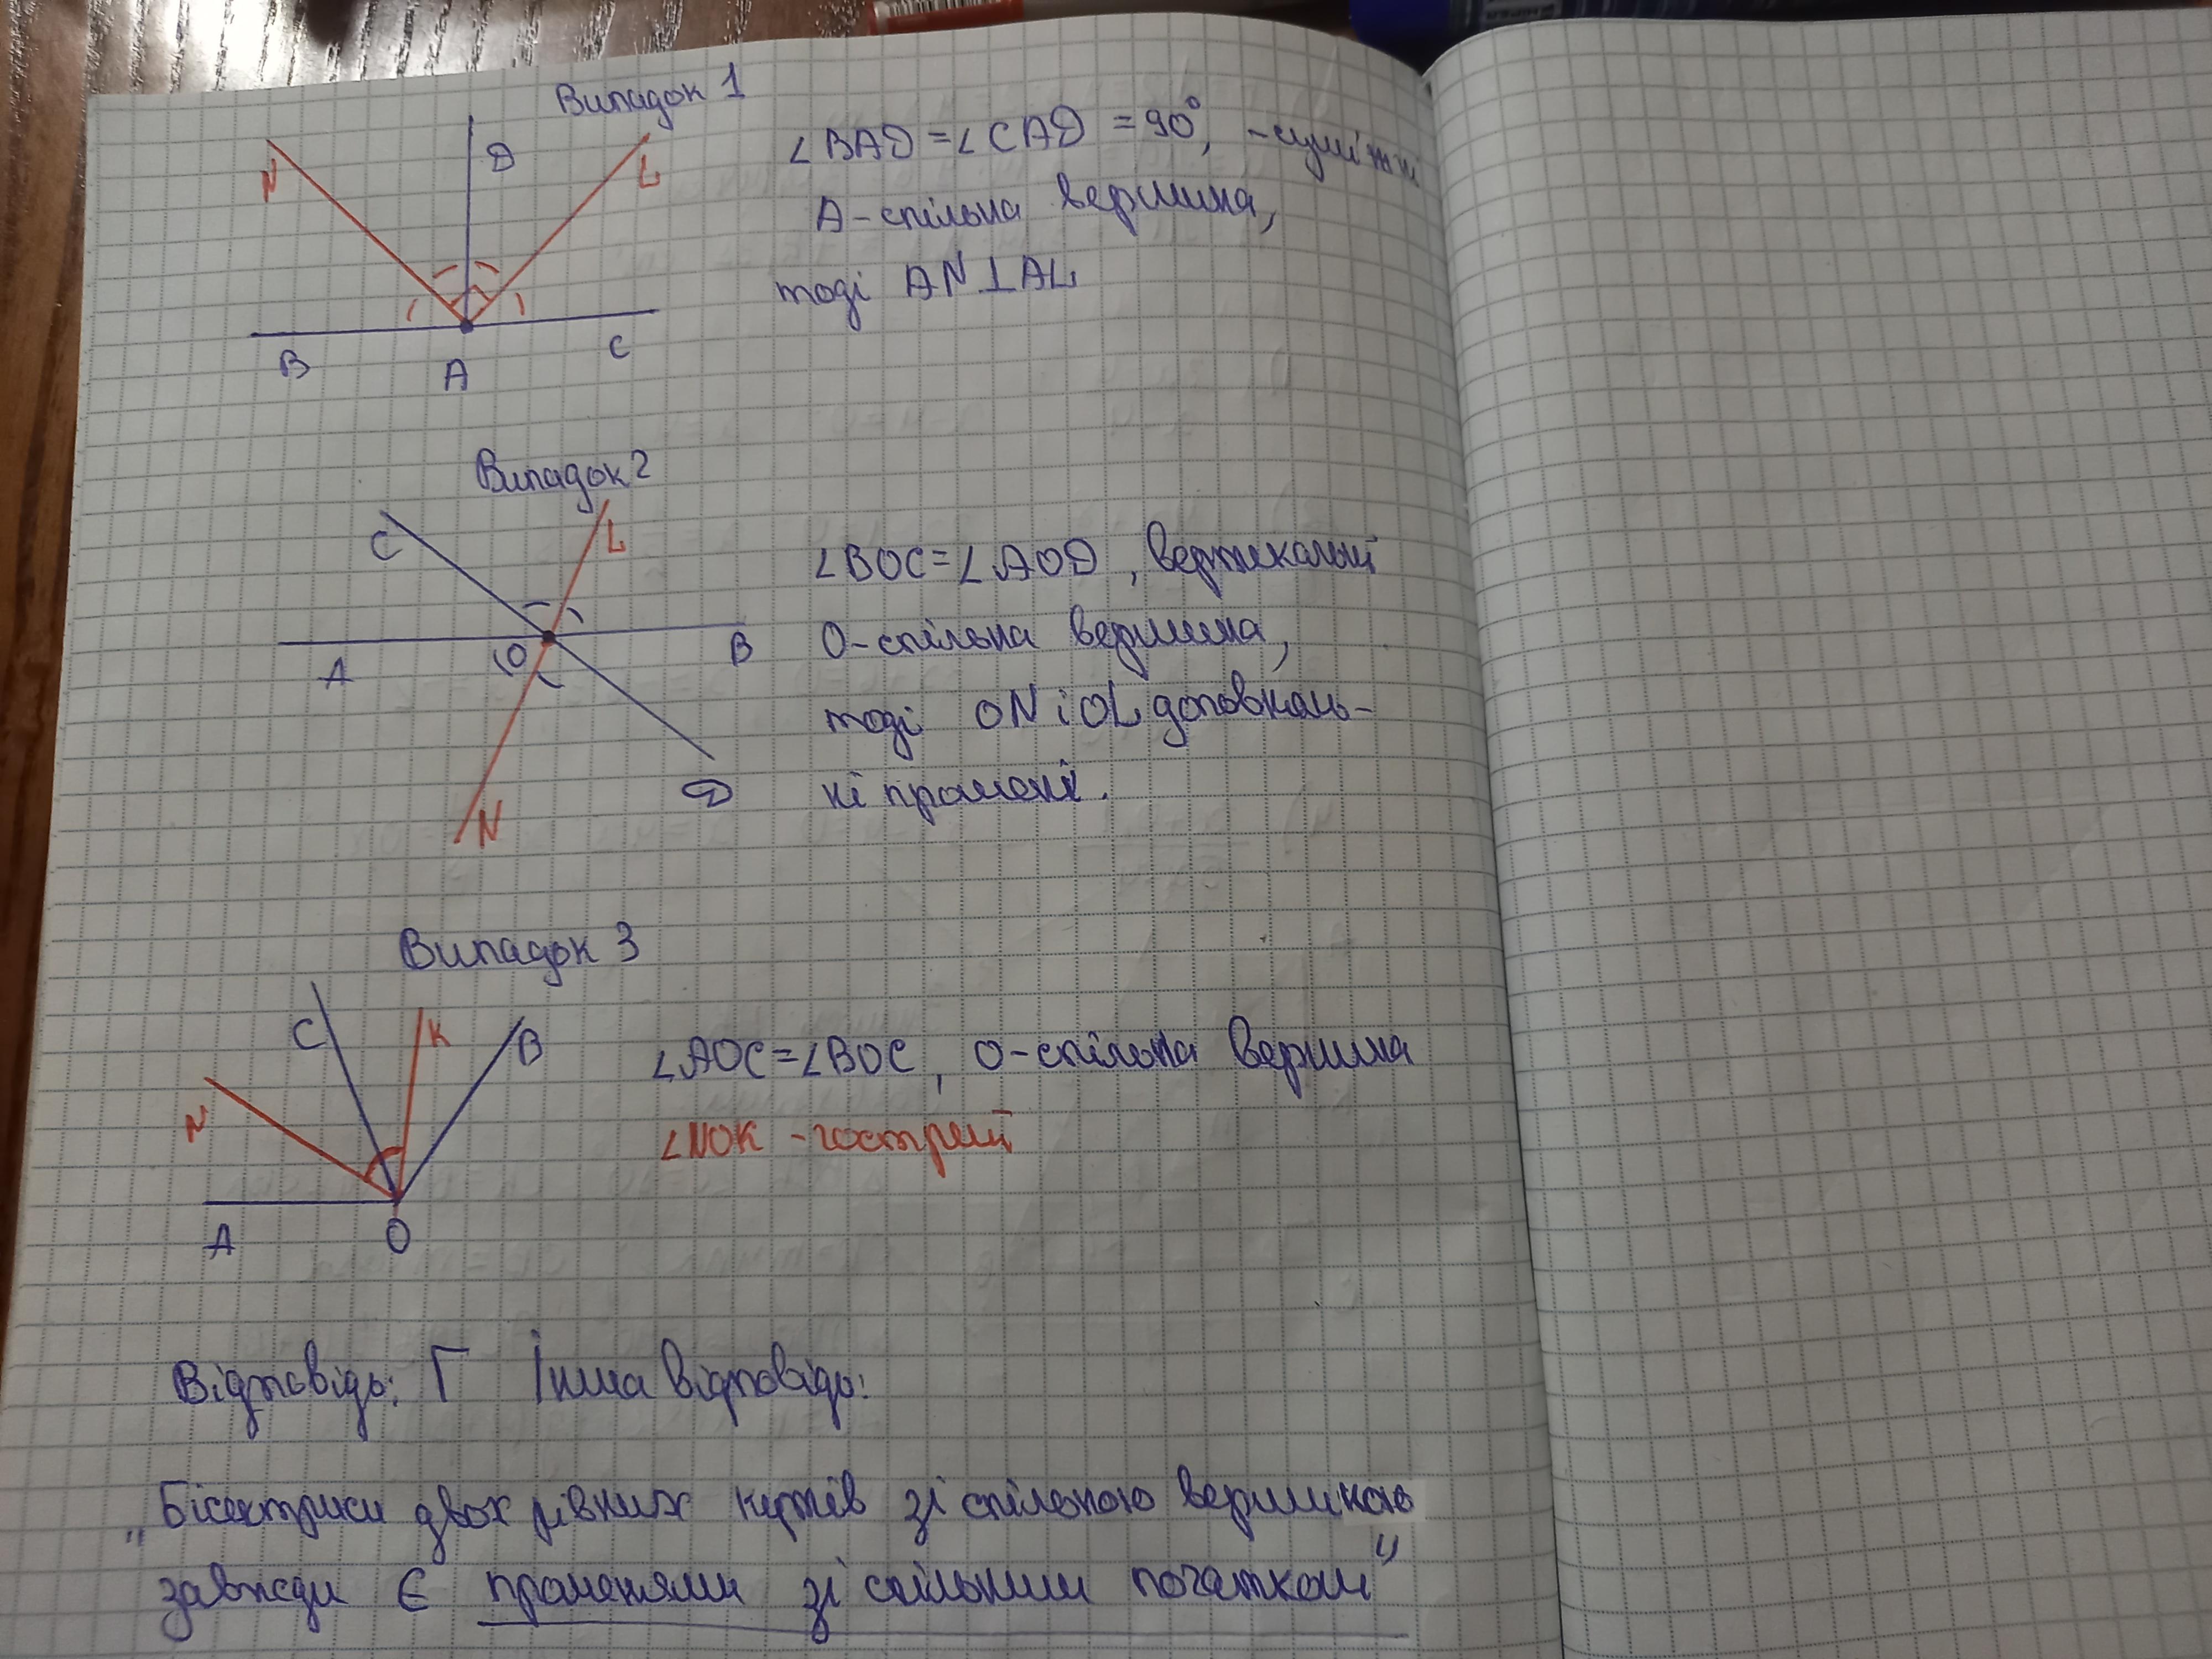 Випадок 1
N
D
L
B
A
C
∠BAD = ∠CAD = 90°, - суміжні
A - спільна вершина,
тоді AN ⊥ AL
Випадок 2
C
L
A
O
B
N
D
∠BOC = ∠AOD, вертикальні
O - спільна вершина,
тоді ON і OL доповняль-
ні промені.
Випадок 3
N
C
K
B
A
O
∠AOC = ∠BOC, O - спільна вершина
∠NOK - гострий
Відповідь: Г Інша відповідь:
"Бісектриси двох рівних кутів зі спільною вершиною
завжди є променями зі спільним початком"